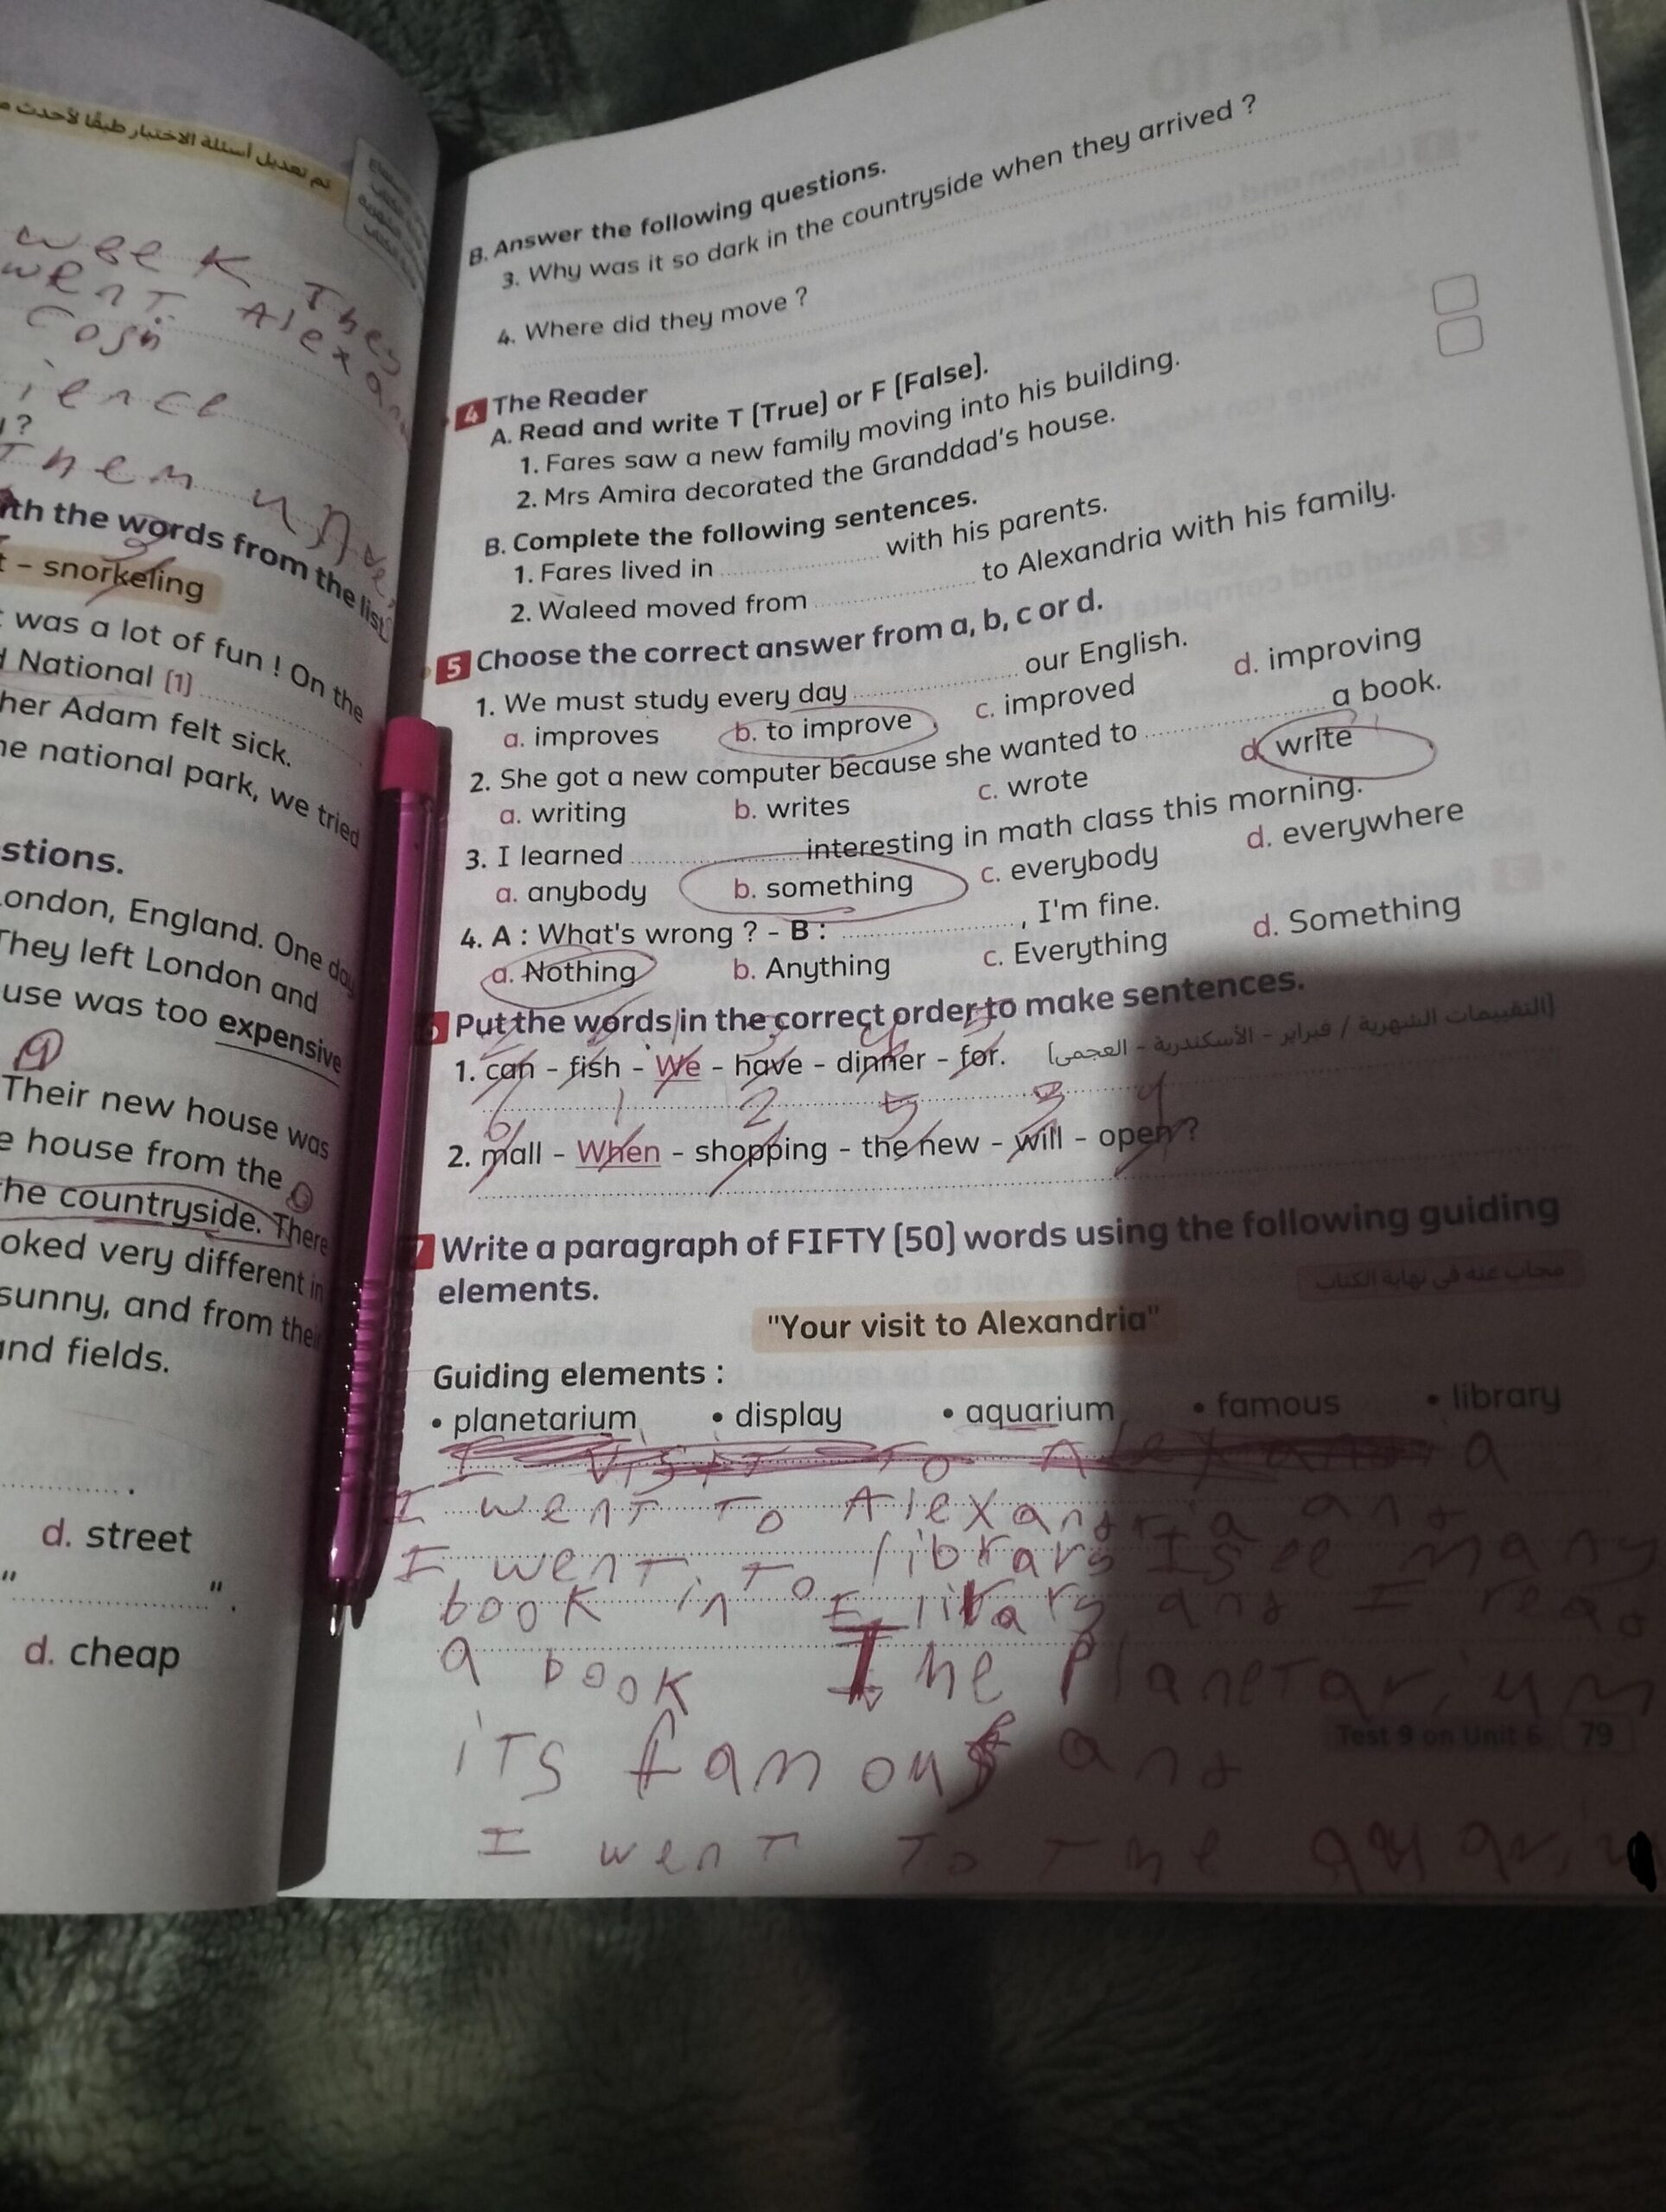 تم تعديل أسئلة الاختبار طبقًا لأحدث
week They
went Alexan
ience
y ?
Them
ith the words from the list
t – snorkeling
t was a lot of fun ! On the
d National (1)
her Adam felt sick.
he national park, we tried
stions.
London, England. One day
They left London and
use was too expensive
Their new house was
e house from the
he countryside. There
oked very different in
sunny, and from their
and fields.
d. street
" ".
d. cheap
B. Answer the following questions.
3. Why was it so dark in the countryside when they arrived ?
4. Where did they move ?
4 The Reader
A. Read and write T (True) or F (False).
1. Fares saw a new family moving into his building.
2. Mrs Amira decorated the Granddad's house.
B. Complete the following sentences.
1. Fares lived in with his parents.
2. Waleed moved from to Alexandria with his family.
5 Choose the correct answer from a, b, c or d.
1. We must study every day our English.
a. improves b. to improve c. improved d. improving
2. She got a new computer because she wanted to a book.
a. writing b. writes c. wrote d. write
3. I learned interesting in math class this morning.
a. anybody b. something c. everybody d. everywhere
4. A : What's wrong ? - B : , I'm fine.
a. Nothing b. Anything c. Everything d. Something
6 Put the words in the correct order to make sentences.
1. can – fish – We – have – dinner – for. (التقييمات الشهرية / فبراير - الأسكندرية - العجمى)
6 1 2 5 3 4
2. mall – When – shopping – the new – will – open ?
7 Write a paragraph of FIFTY (50) words using the following guiding
elements.
مجاب عنه فى نهاية الكتاب
"Your visit to Alexandria"
Guiding elements :
• planetarium • display • aquarium • famous • library
I visit to Alexandria
I went to Alexandria and
I went to library I see many
book in library and I read
a book The Planetarium
its famous and
Test 9 on Unit 6 79
I went to the aquariu